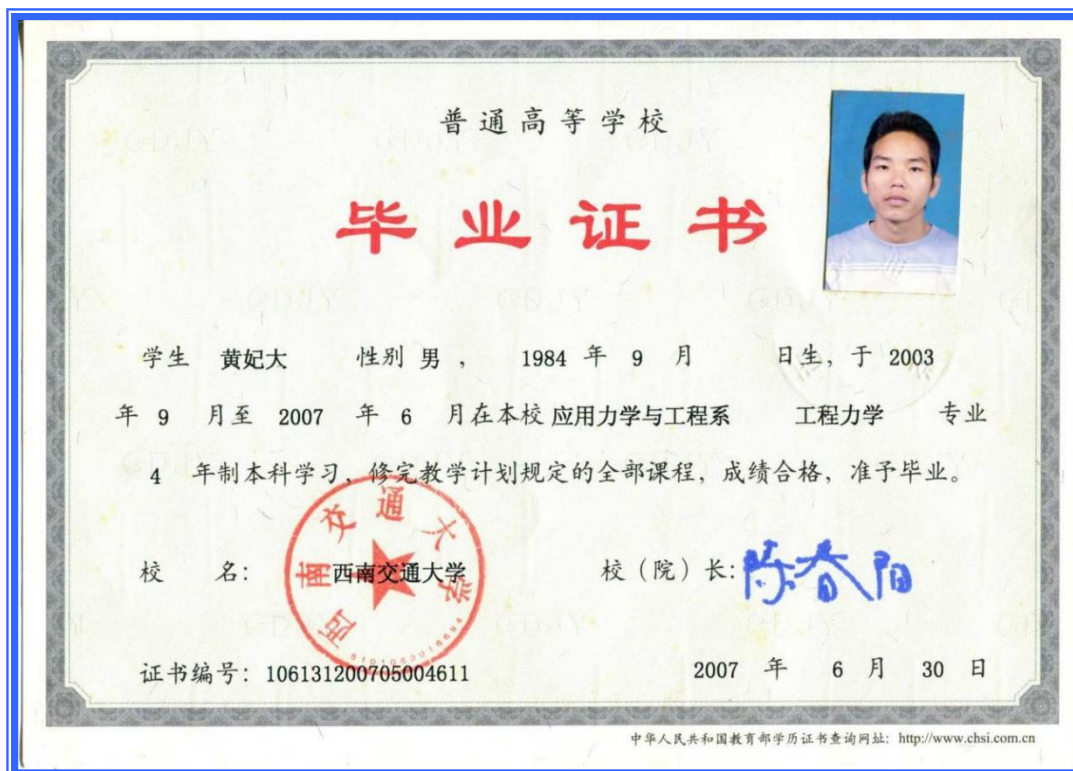 普通高等学校
毕业证书
学生 黄妃大 性别 男 ， 1984 年 9 月 日生，于 2003
年 9 月至 2007 年 6 月在本校 应用力学与工程系 工程力学 专业
4 年制本科学习，修完教学计划规定的全部课程，成绩合格，准予毕业。
校 名： 西南交通大学 校（院）长：陈春阳
西南交通大学
证书编号：106131200705004611 2007 年 6 月 30 日
中华人民共和国教育部学历证书查询网址：http://www.chsi.com.cn